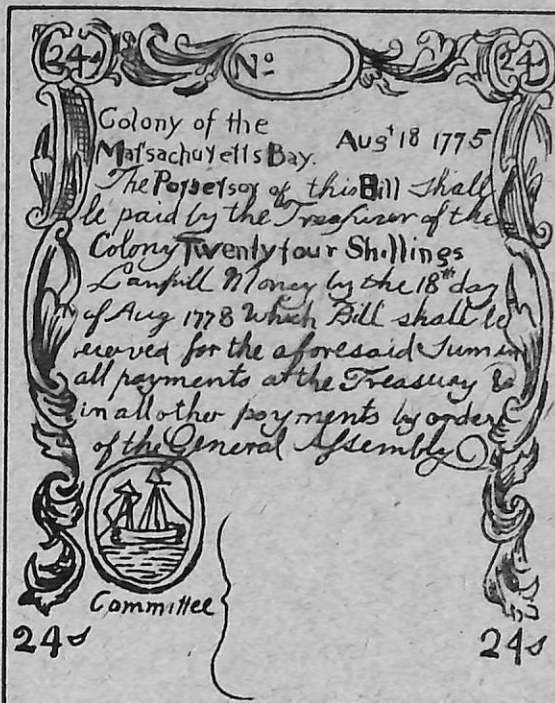 24s Nº 24s
Colony of the
Matsachusetts Bay. Augt 18 1775
The Possessor of this Bill shall
be paid by the Treasurer of the
Colony Twenty four Shillings
Lawfull Money by the 18th day
of Aug 1778 Which Bill shall be
received for the aforesaid Sum in
all payments at the Treasuay &
in all other payments by order
of the General Assembly
Committee
24s 24s